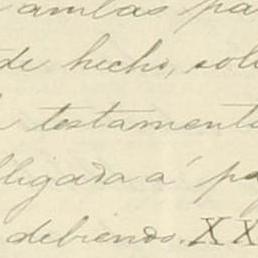 ambas pa
de hecho, solo
testamento
lligada á pa
debiendo. XX